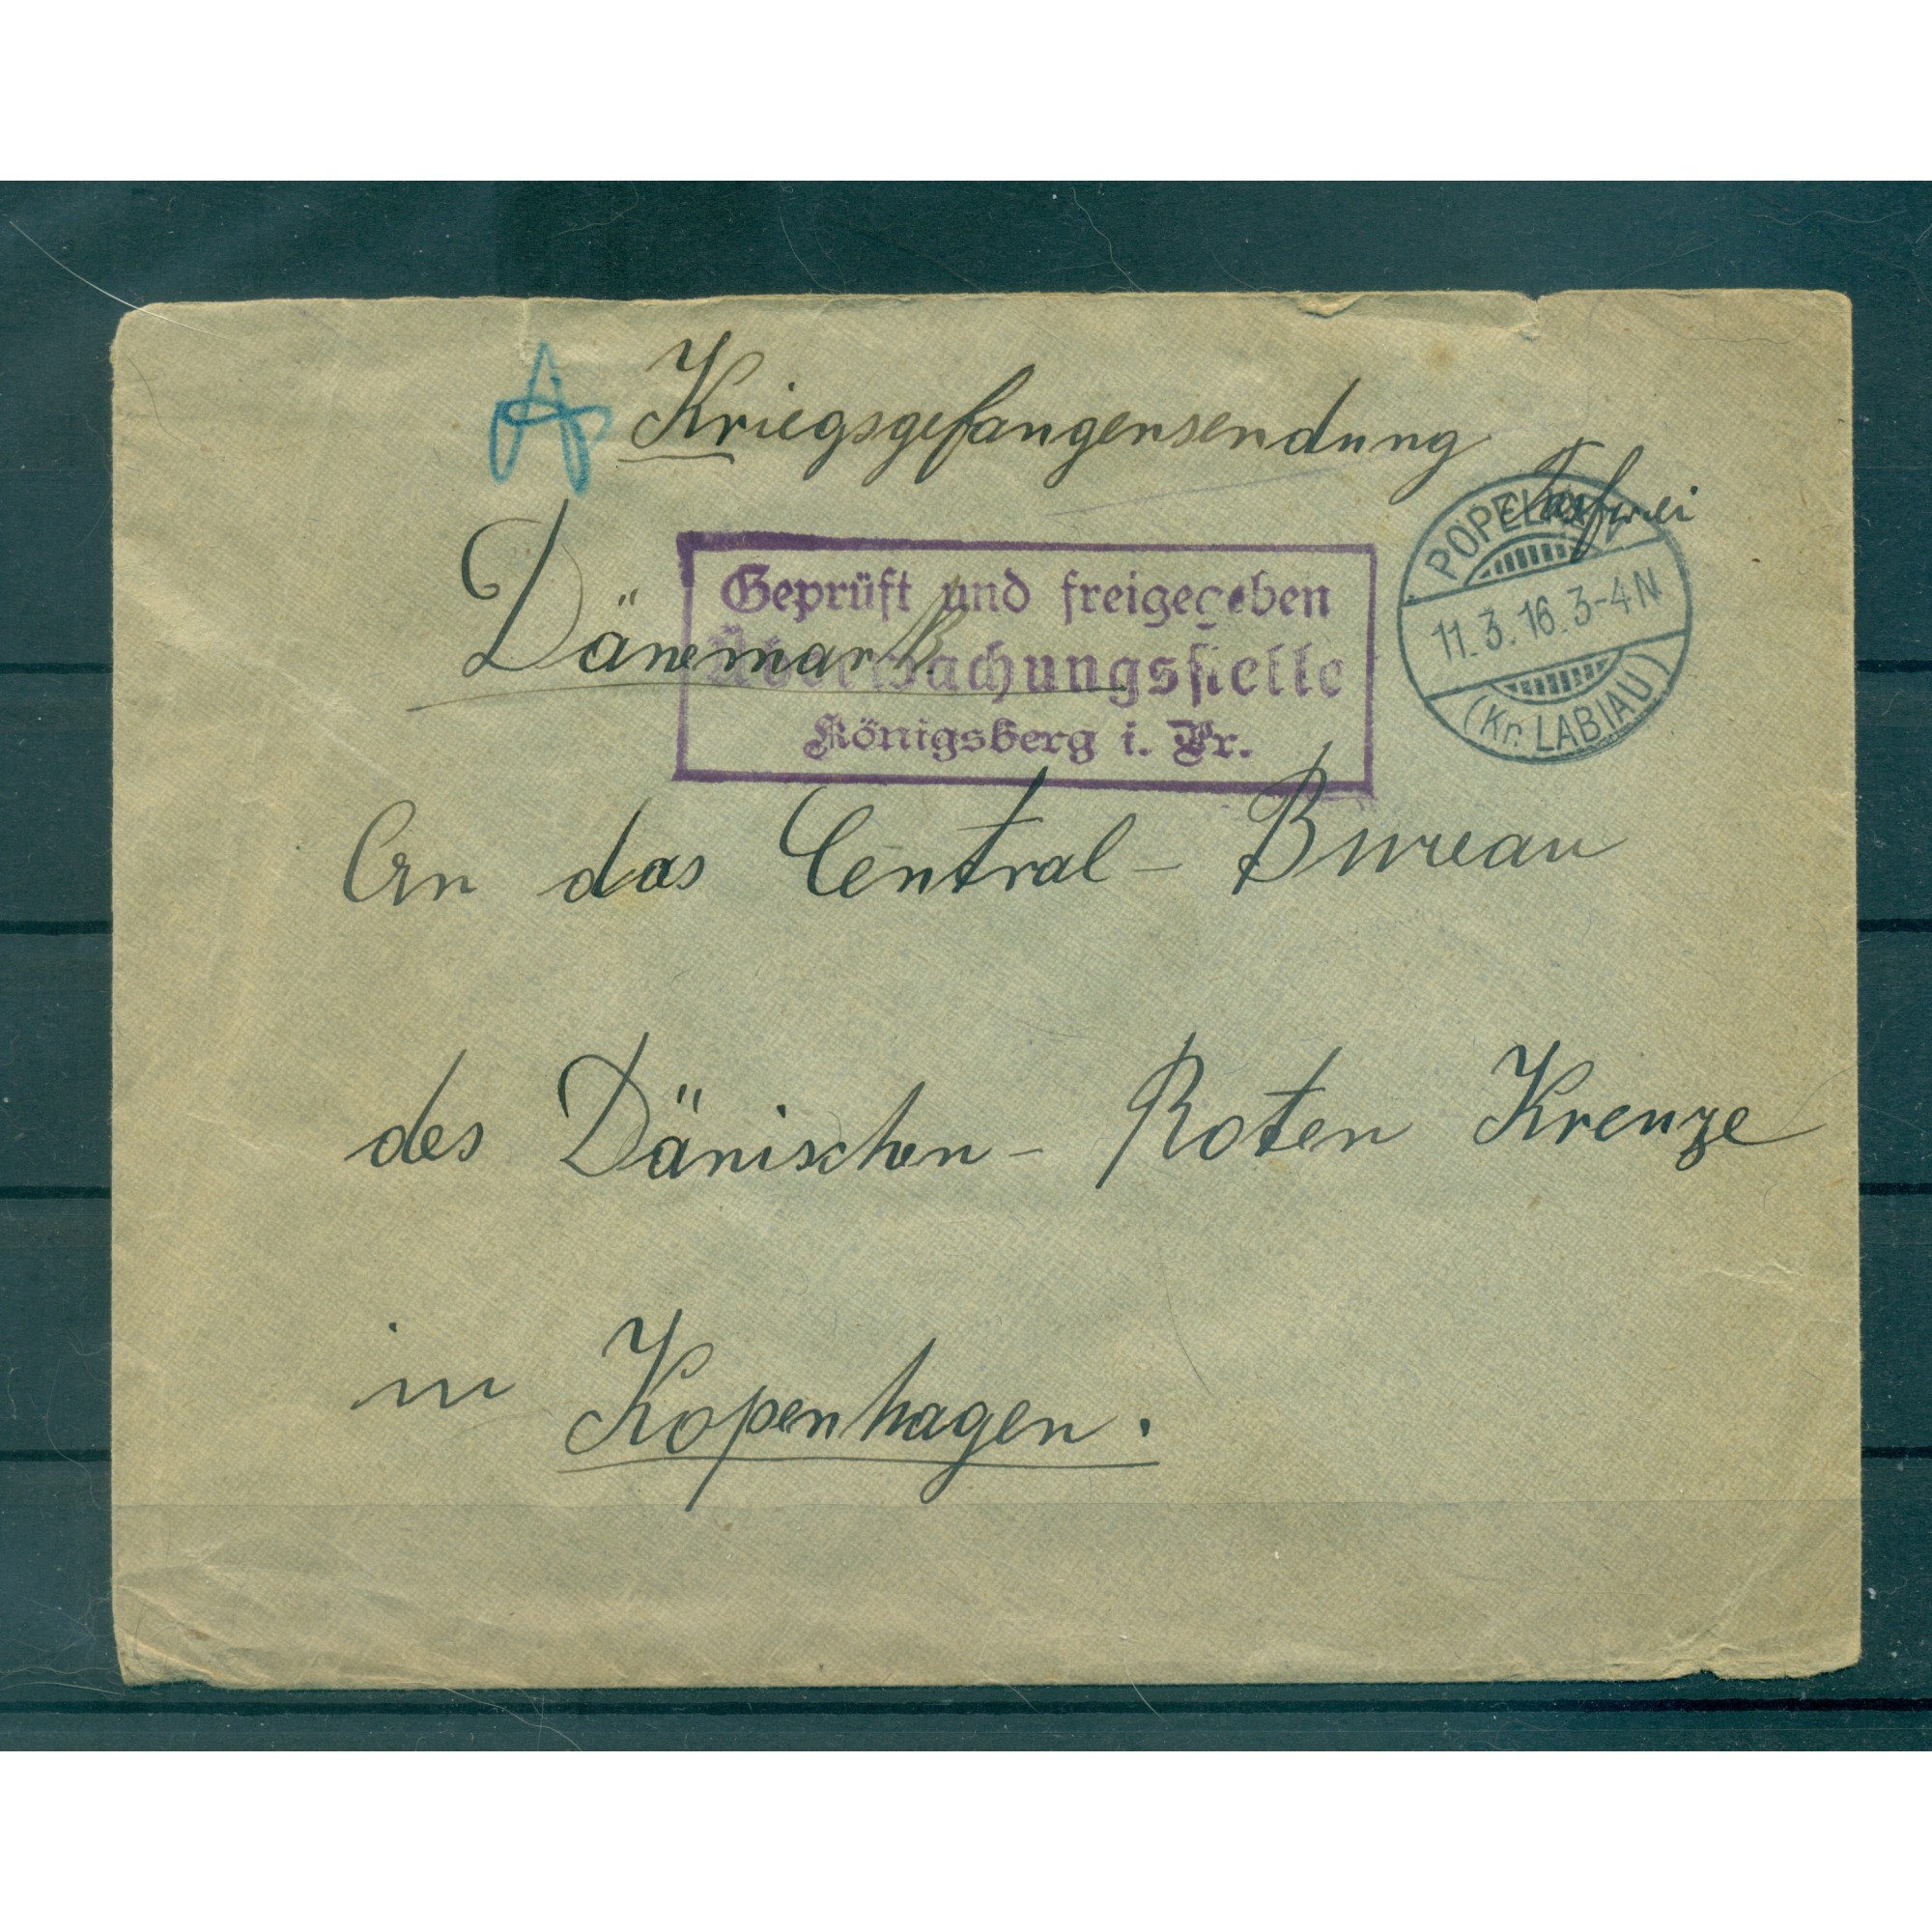 A Kriegsgefangensendung
Taxfrei
Dänemark
Geprüft und freigegeben
Überwachungsstelle
Königsberg i. Pr.
11.3.16. 3-4 N
(Kr. LABIAU)
An das Central - Bureau
des Dänischen - Roten Kreuze
in Kopenhagen.